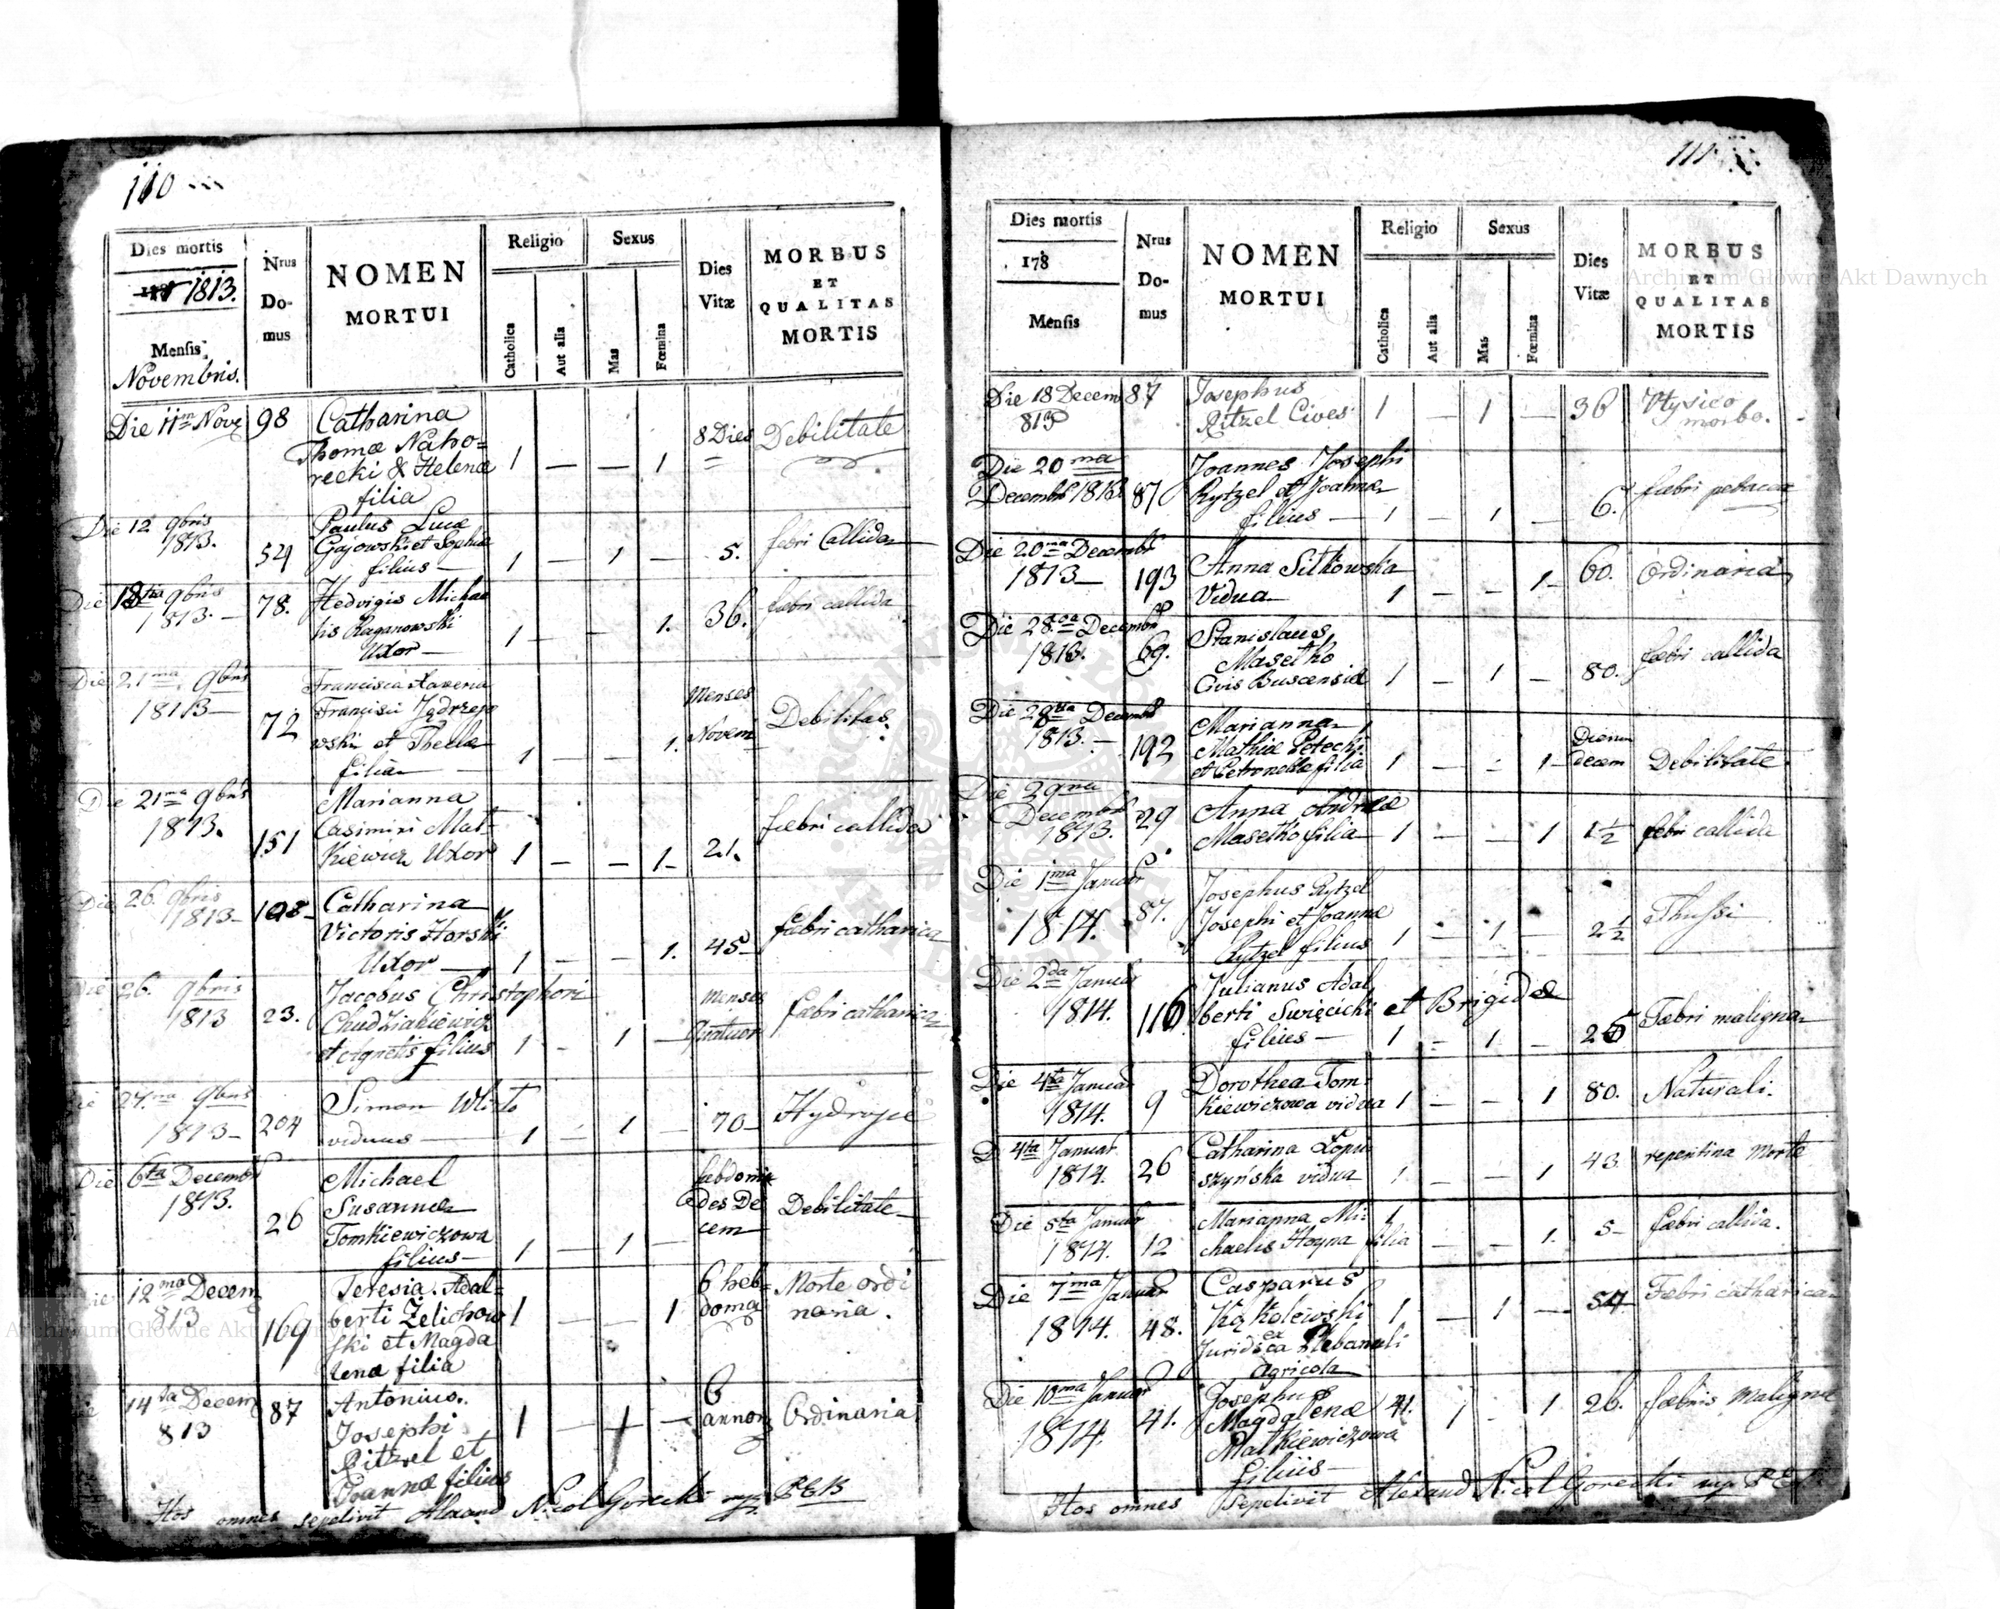 110
Dies mortis
1813.
Mensis
Novembris.
Nrus
Do-
mus
NOMEN
MORTUI
Religio
Catholica
Aut alia
Sexus
Mas
Fœmina
Dies
Vitæ
MORBUS
ET
QUALITAS
MORTIS
Die 11ma Nov 98 Catharina
Thomæ Naho=
recki & Helenæ 1 — — 1 8 Dies Debilitate
filia
Die 12 9bris Paulus Lucæ
1813. 54 Gajowski et Sophiæ
filius — 1 — 1 — 5. febri Callida
Die 18va 9bris 78. Hedvigis Michae
1813. — lis Raganowski 1 — — 1. 36. fæbri callida
Uxor —
Die 21ma 9bris Francisca Xaveria
1813 — 72 Francisci Jędrzejo
wski et Theclæ Menses Novem Debilitas
filia — 1 — — 1.
Die 21ma 9bris Marianna
1813. 151 Casimiri Mat-
kiewicz Uxor 1 — — 1 — 21. fæbri callida
Die 26. 9bris 108 — Catharina
1813 — Victoris Horski
Uxor — 1 — — 1. 45 — fæbri catharica
Die 26. 9bris Jacobus Christophori
1813 23. Chudziakiewicz
et Agnetis filius 1 — 1 — Menses quatuor fæbri catharica
27.ma 9bris Simon
1813 — 204 viduus — 1 — 1 — 70 —
Die 6ta Decembr Michael
1813. 26 Susannæ
Tomkiewiczowa
filius — 1 — 1 — hebdoma
des De
cem Debilitate —
12ma Decem Teresia Adal=
813 169 berti Zelichow 1 — — 1 6 heb=
doma Morte ordi
naria.
ski et Magda
lenæ filia
14ta Decem 87 Antonius.
813 Josephi 1 — 1 — 6
annor Ordinaria
Ritzel et
Joannæ filius
Hos omnes sepelivit Alexand Nicol Gorecki mp
111
Dies mortis
178
Mensis
Nrus
Do-
mus
NOMEN
MORTUI
Religio
Catholica
Aut alia
Sexus
Mas
Fœmina
Dies
Vitæ
MORBUS
ET
QUALITAS
MORTIS
Die 18 Decem 87 Josephus
813 Ritzel Cives 1 — 1 — 36 morbo.
Die 20ma Joannes Josephi
Decembr 1813 87 Rytzel et Joannæ
filius — 1 — 1 — 6. fæbri
Die 20ma Decembr
1813 — 193 Anna Sitkowska
Vidua — 1 — — 1 — 60. Ordinaria
Die 28va Decembr Stanislaus
1813. 69. Masetko
Civis Buscensis 1 — 1 — 80. fæbri callida
Die Decembr Marianna
1813. — 192 Mathiæ Petecki
et Petronellæ filia 1 — — 1 — Dierum
decem Debilitate
Die 29na
Decembr 29 Anna Andreæ
1813. Masetko filia 1 — — 1 1½ febri callida
Die 1ma Januar Josephus Rytzel
1814. 87. Josephi et Joannæ
Rytzel filius 1 — 1 — 2½ Thussi
Die 2da Januar Julianus Adal
1814. 116 berti Swięcicki et Brigidæ
filius — 1 — 1 — 26 Fæbri maligna
Die 4ta Januar Dorothea Tom-
1814. 9 kiewiczowa vidua 1 — — 1 80. Naturali.
D 4ta Januar. Catharina Łopu
1814. 26 szyńska vidua 1 — — 1 43 repentina Morte
Die 5ta Januar Marianna Mi-
1814. 12 chaelis Hoyna filia 1 — — 1. 5 — fæbri callida.
Die 7ma Januar Casparus
1814. 48. Kąkolewski 1 — 1 — 54 Fæbri catharica
Juridica Plebanali
Agricola
Die 10ma Januar Josephus
1814. 41. Magdalenæ 41. 1 — 1 26. fæbris Maligna
Matkiewiczowa
filiis —
Hos omnes sepelivit Alexand Nicol Gorecki mp
Archiwum Główne Akt Dawnych
Archiwum Główne Akt Dawnych